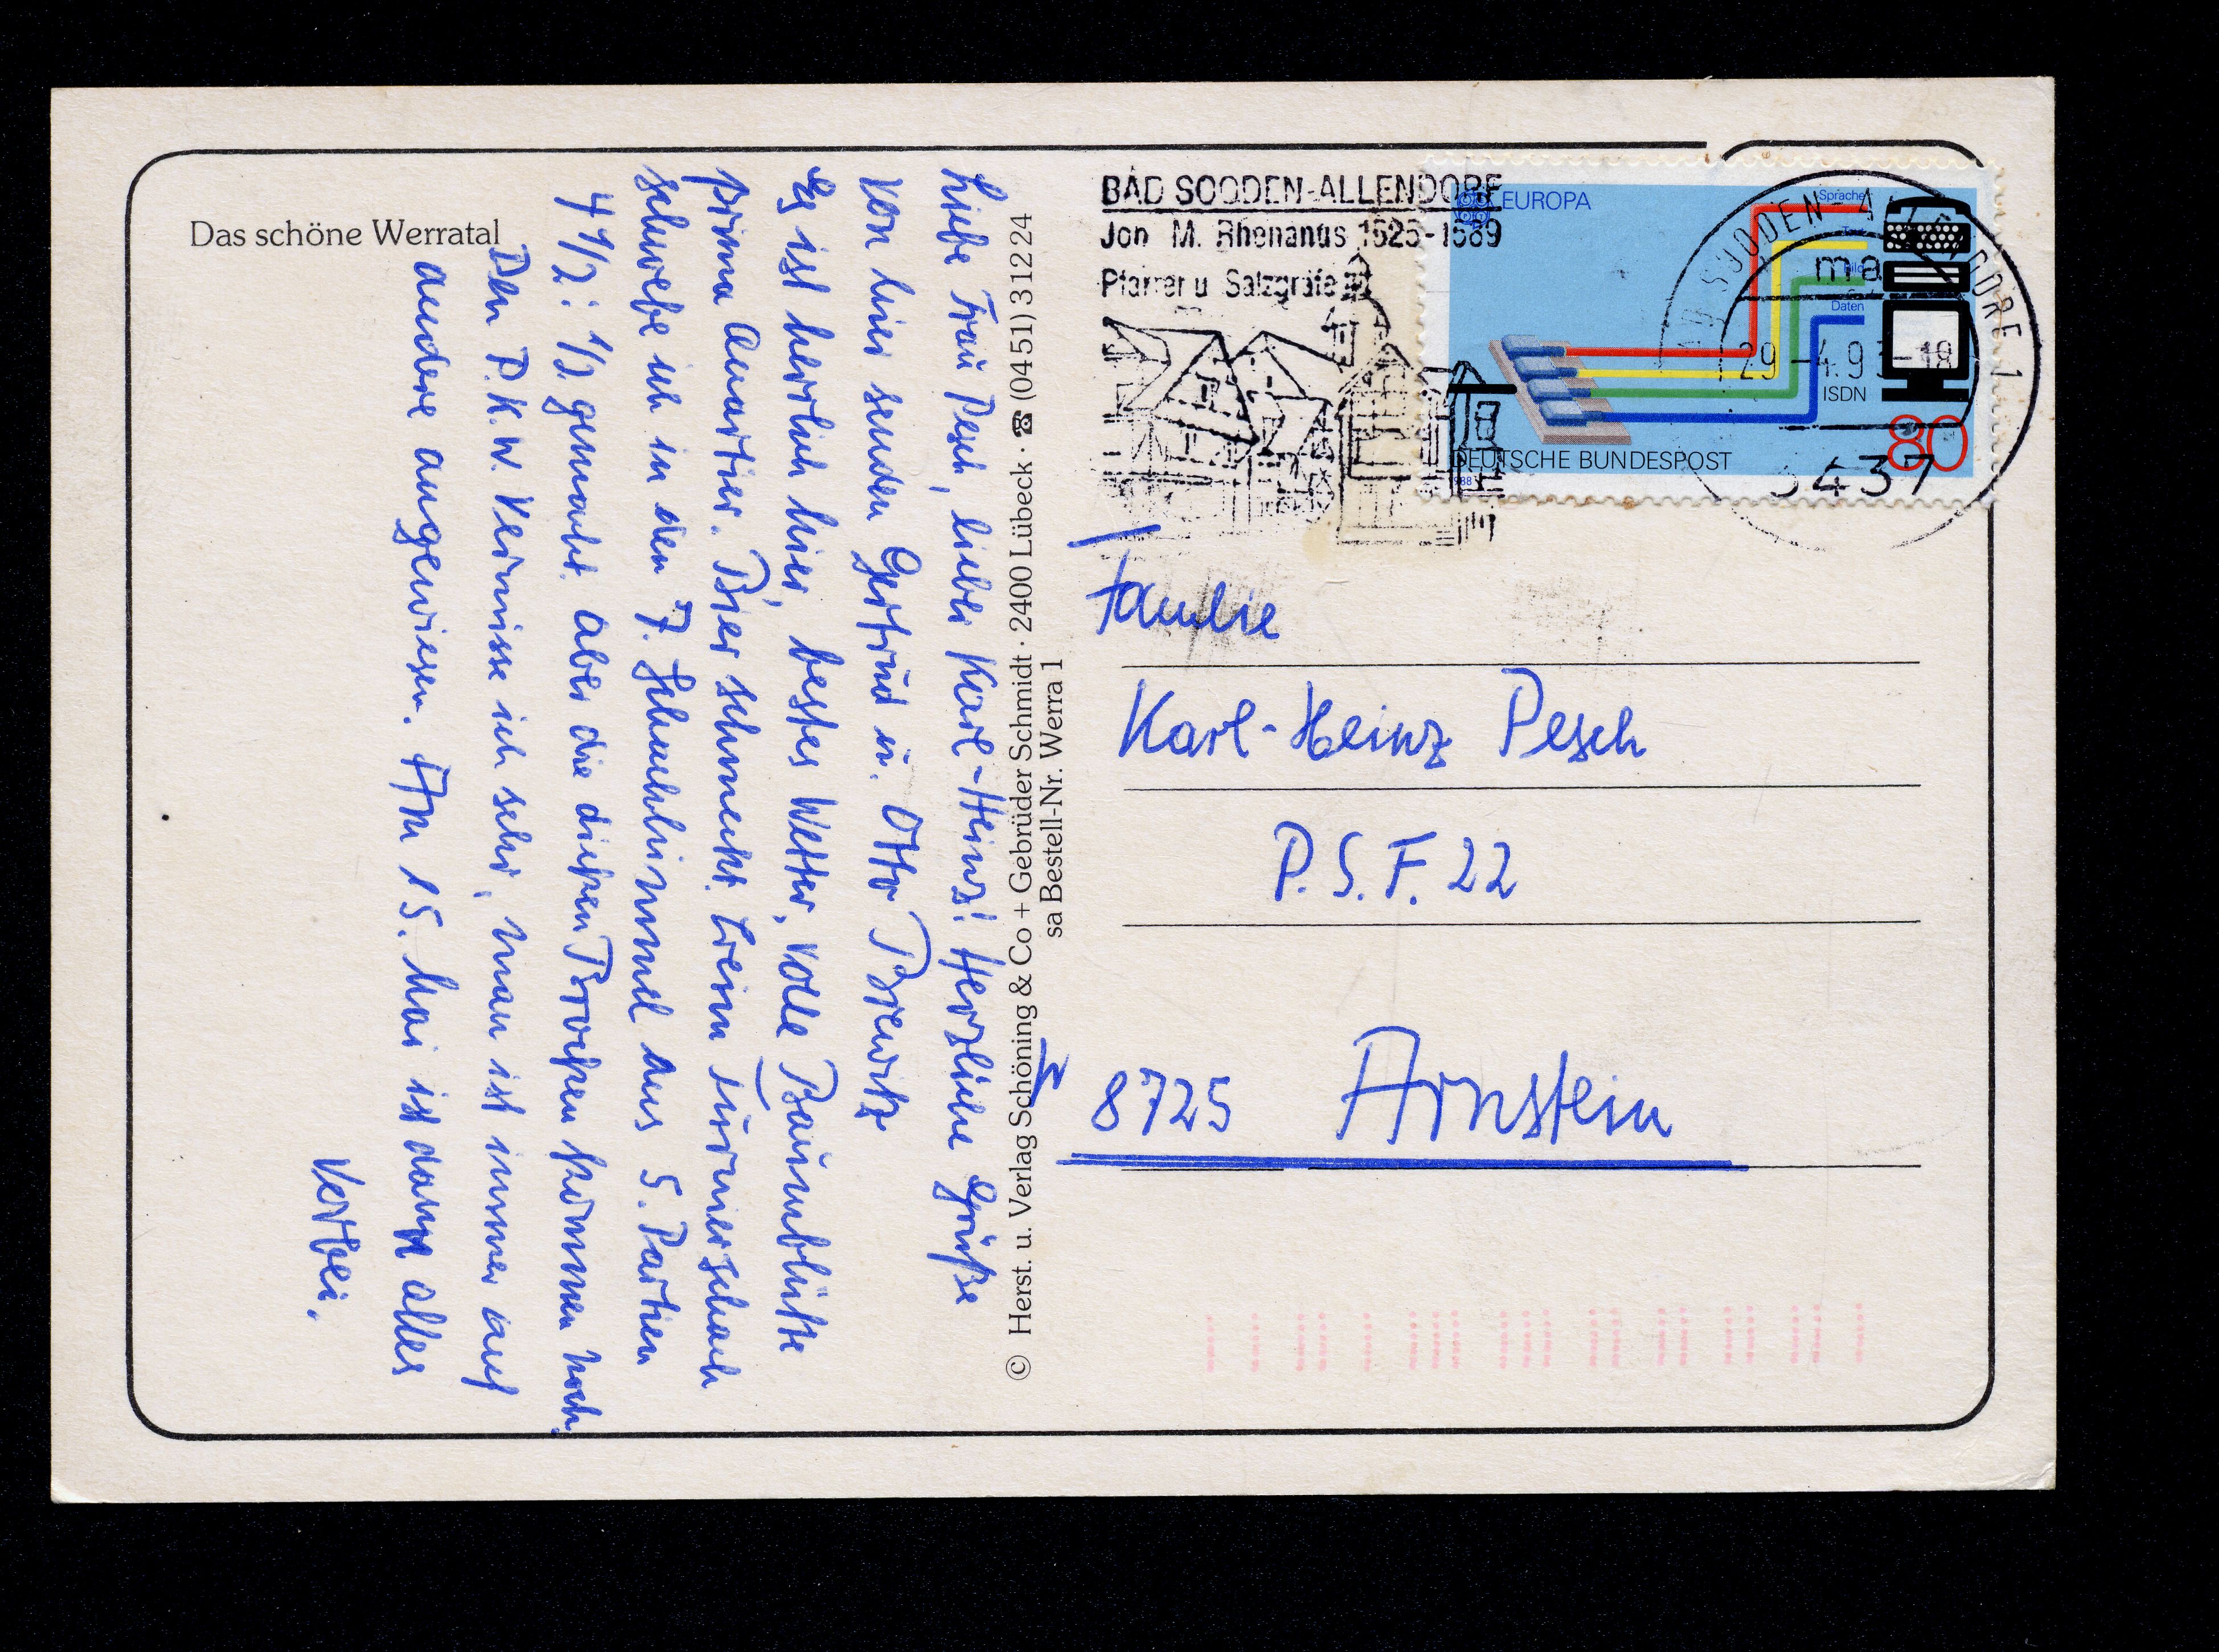 Das schöne Werratal
Liebe Frau Pesch, lieber Karl-Heinz! Herzliche Grüße
von hier senden Gertrud u. Otto Brewitz
Es ist herrlich hier, bestes Wetter, volle Baumblüte
prima Quartier. Bier schmeckt. Beim Turnierschach
schwebe ich in den 7. Schachhimmel aus 5. Partien
4 1/2 : 1/2 gemacht. aber die dicken Brocken kommen noch.
Den P.K.W. Vermisse ich sehr, man ist immer auf
andere angewiesen. Am 15. Mai ist dann alles
Vorbei.
© Herst. u. Verlag Schöning & Co + Gebrüder Schmidt · 2400 Lübeck · ☎ (0451) 31224
sa Bestell-Nr. Werra 1
BAD SOODEN-ALLENDORF
Joh M. Rhenanus 1525-1589
Pfarrer u Salzgräfe
EUROPA
Sprache
Text
Bild
Daten
ISDN
80
DEUTSCHE BUNDESPOST
1988
BAD SOODEN-ALLENDORF 1
ma
29.-4.93-18
3437
Familie
Karl-Heinz Pesch
P.S.F. 22
W 8725 Arnstein